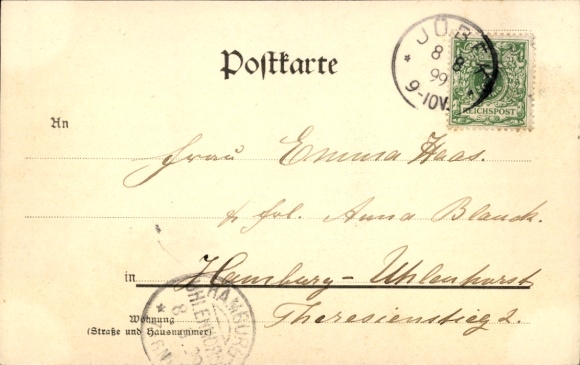 JÜBEK
8 8
99
9-10V.
REICHSPOST
Postkarte
An
Frau Emma Haas.
Frl. Anna Blanck.
in Hamburg-Uhlenhorst
Theresienstieg 2.
Wohnung
(Straße und Hausnummer)
HAMBURG
UHLENHORST
8 8